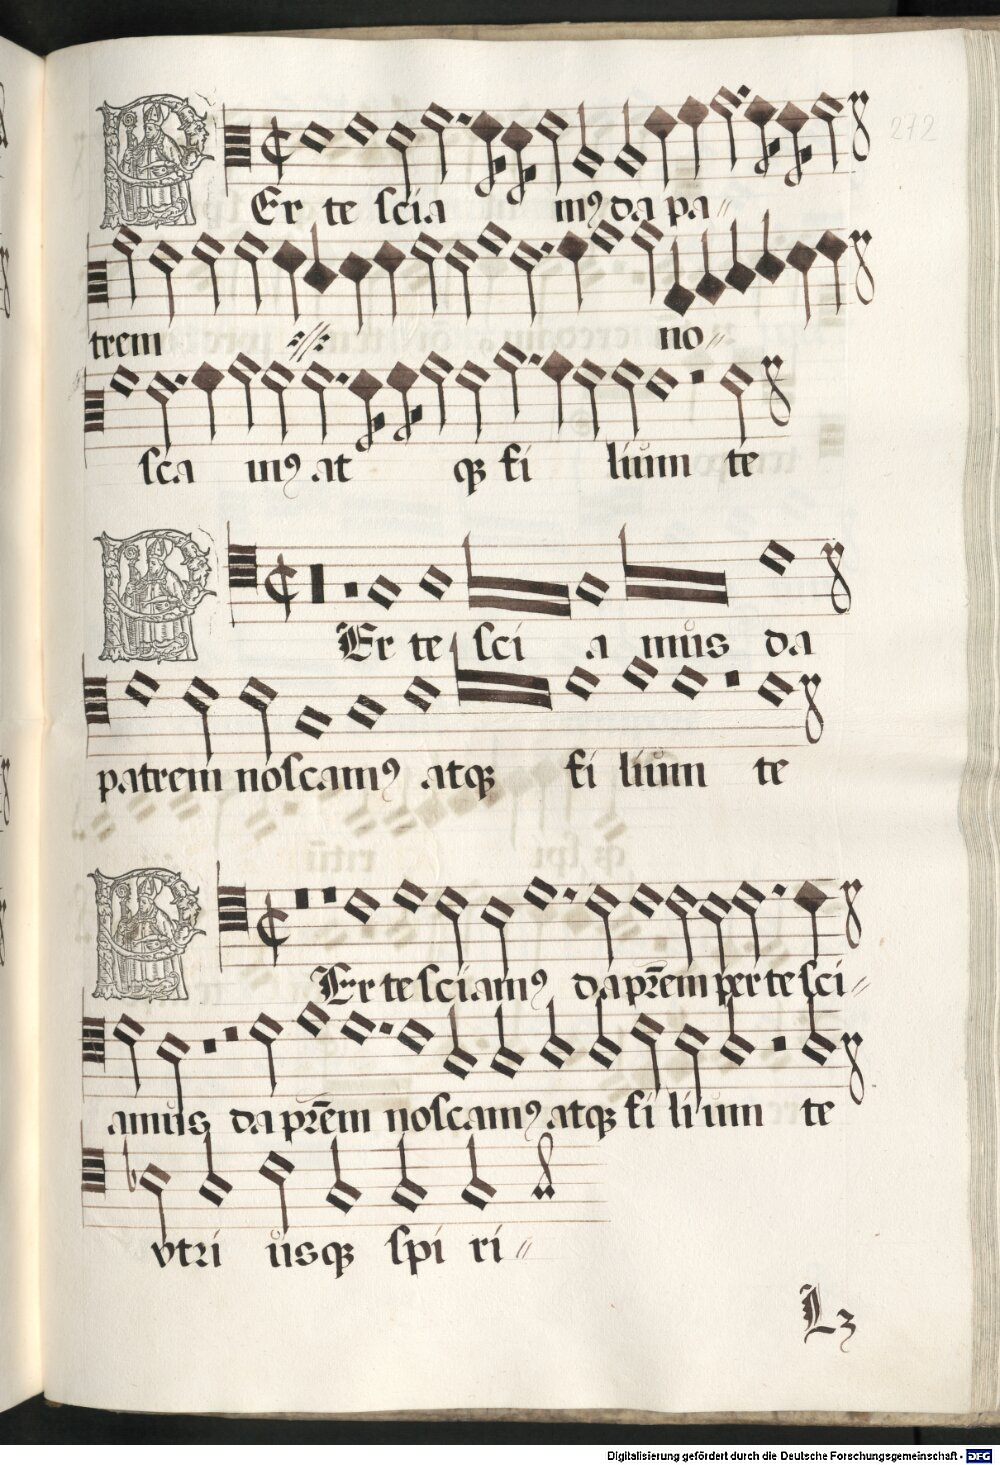 272
PEr te scia mꝰ da pa〃
trem no〃
sca mꝰ at qꝫ fi liům te
PEr te sci a můs da
patrem noscamꝰ atqꝫ fi liům te
PEr te sciamꝰ da pr̄em per te sci〃
amůs da pr̄em noscamꝰ atqꝫ fi lium te
vtri ůsqꝫ spi ri〃
L3
Digitalisierung gefördert durch die Deutsche Forschungsgemeinschaft - DFG